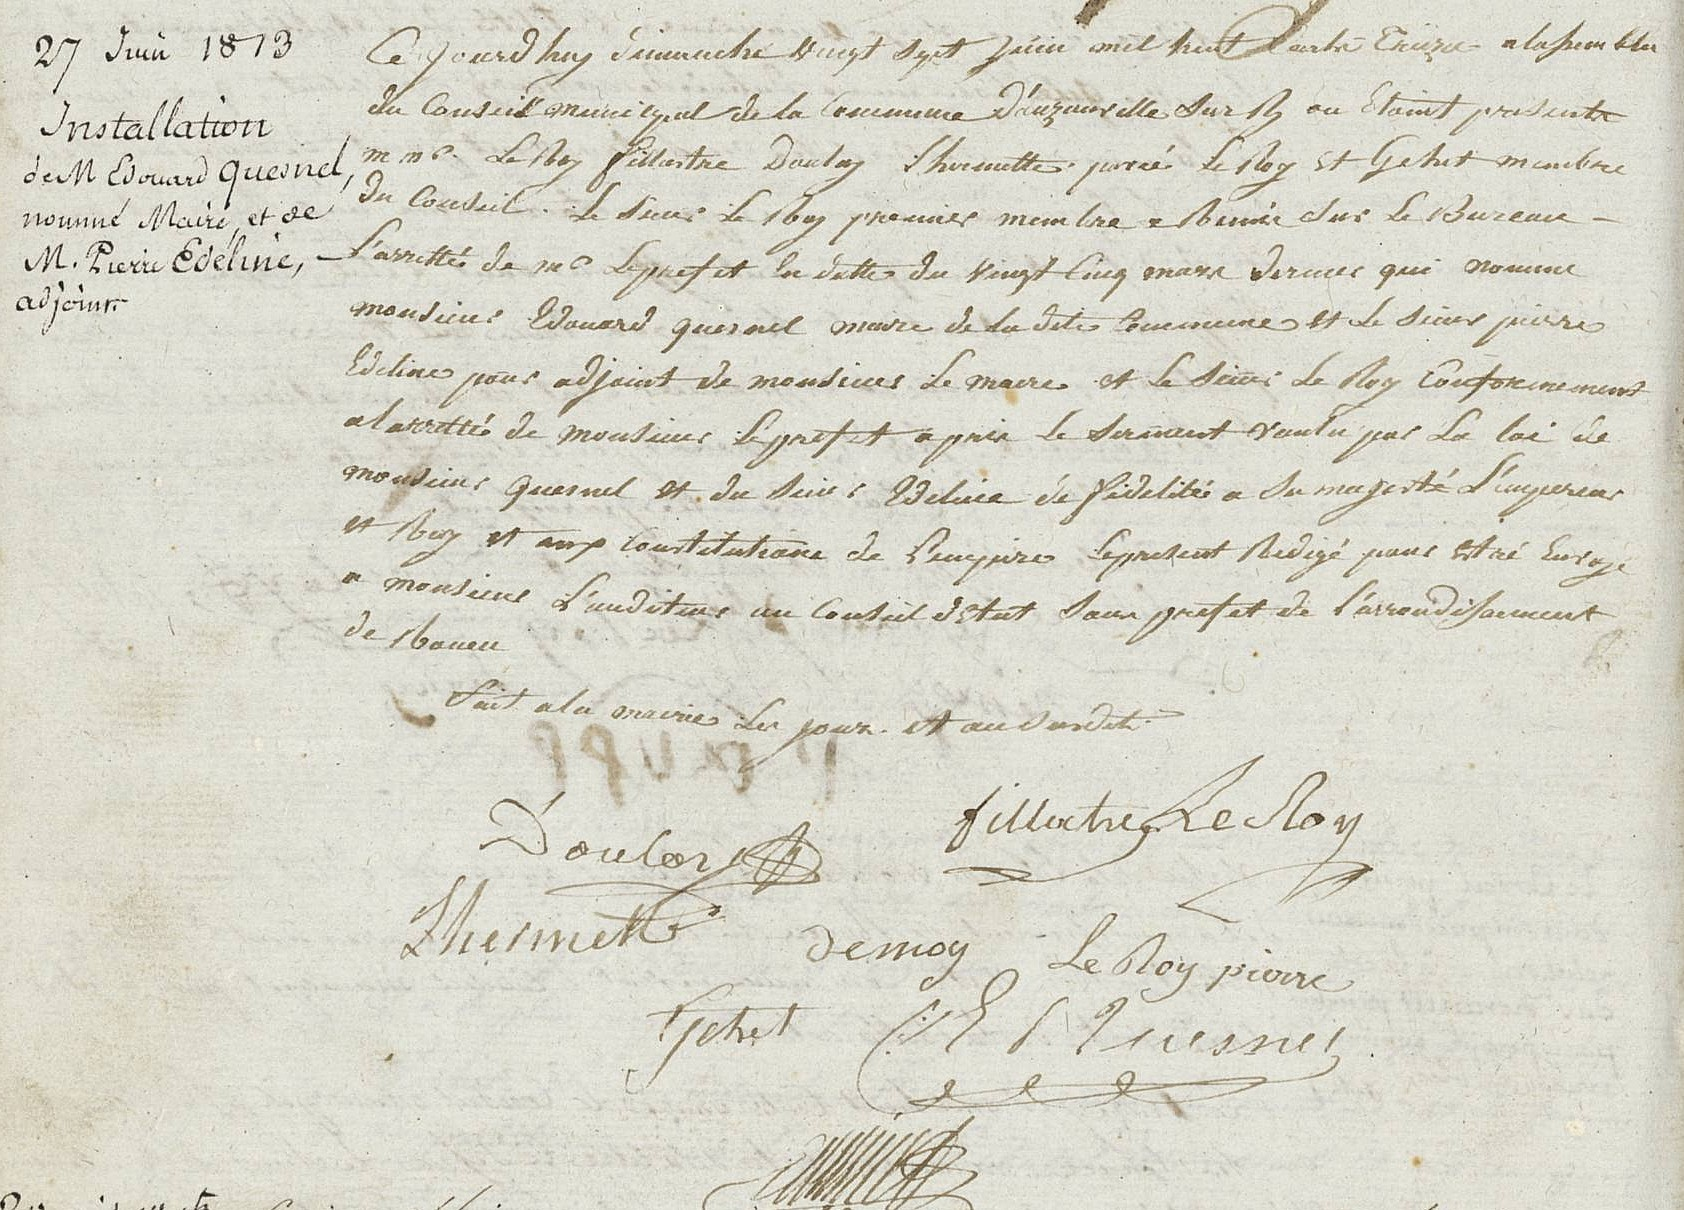 27 Juin 1813
Installation
de M Edouard Quesnel,
nommé Maire, et de
M. Pierre Edeline,
adjoint
Ce jourdhuy dimanche vingt sept juin mil huit Cents Treize a lassemblée
du Conseil municipal de la Commune D'auzouville Sur Ry ou Etoint presents
m mrs. Le Roy fillastre Doulay Lhermette Le Roy et Gehet membre
du Conseil. Le Sieur Le Roy premier membre a Remis sur Le Bureau
L'arretté de mr Leprefet En datte du vingt Cinq mars dernier qui nomme
monsieur Edouard quesnel maire de la dite Commune et Le Sieur pierre
Edeline pour adjoint de monsieur Le maire et Le Sieur Le Roy Conformement
a larretté de monsieur Leprefet a pris Le Serment voulu par La loi de
monsieur quesnel et du Sieur Edeline de fidelité a Sa majesté L'empereur
et Roy et aux Constitutions de L'empire Lepresent Redigé pour Etre Envoyé
a monsieur L'auditeur au Conseil dEtat Sous prefet de l'arrondissement
de Rouen
Fait a la mairie Les jour et an Susdit
Doulay fillatre Le Roy
Lhermette demoy Le Roy pierre
Gehet Ed Quesnel